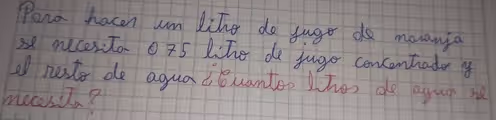 Para hacer un litro de jugo de naranja
se necesita 0 75 litro de jugo concentrado y
el resto de agua ¿Cuantos litros de agua se
necesita?